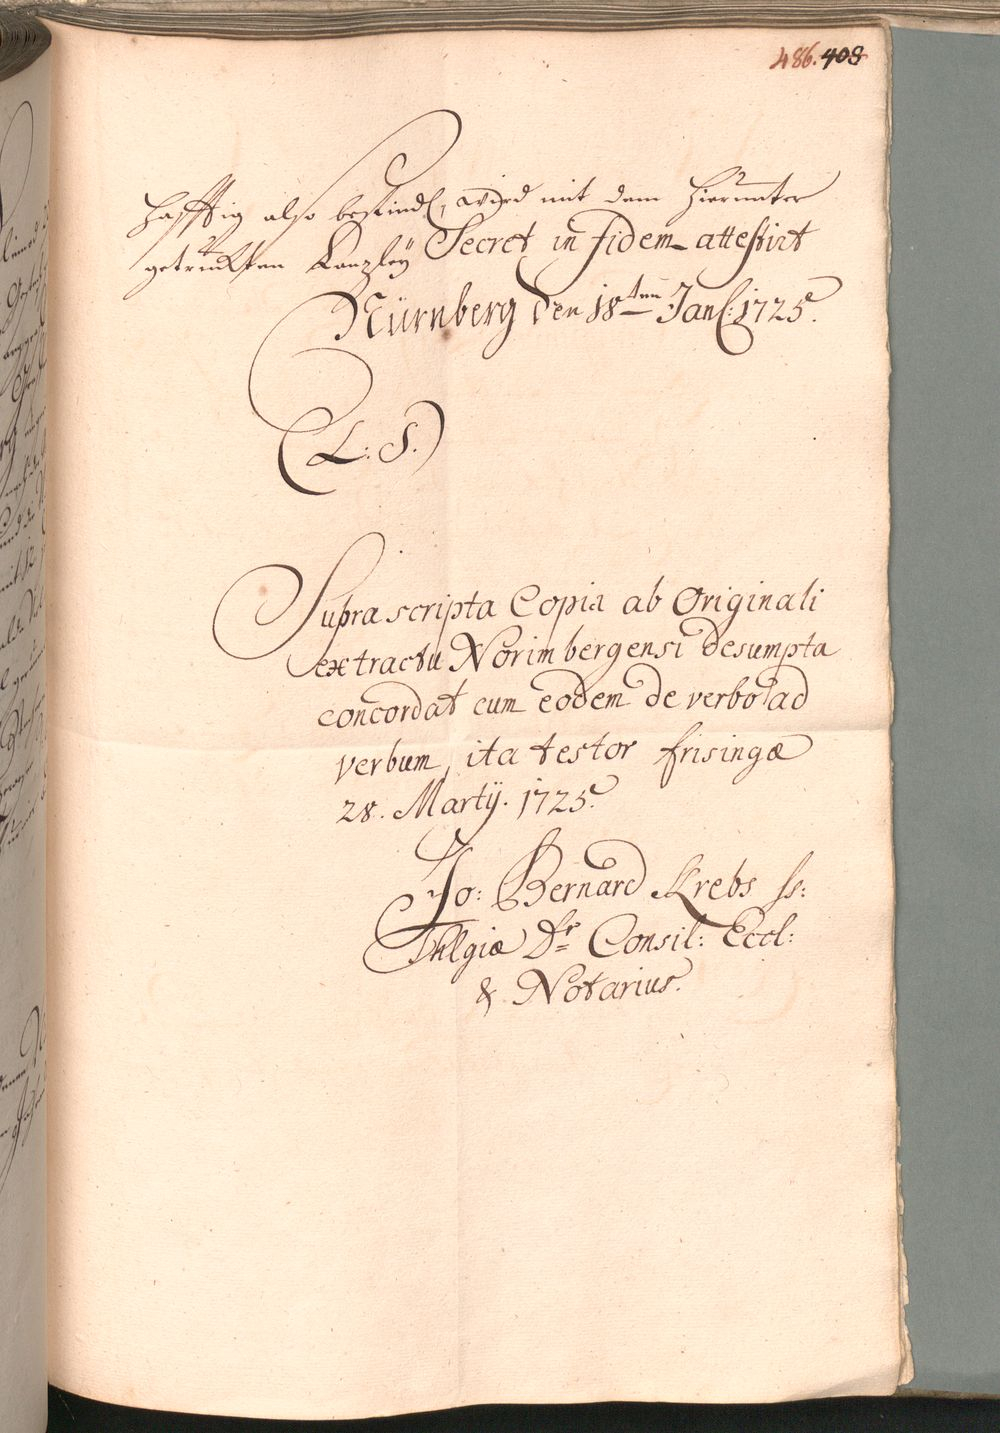 486. 408
hafftig also befindl, wird mit dem hierunter
getruckten Canzley Secret in fidem attestirt
Nürnberg den 18ten Jan: 1725.
(L: S.)
Suprascripta Copia ab Originali
extractu Norimbergensi desumpta
concordat cum eodem de verbo ad
verbum, ita testor frisingæ
28. Martij. 1725.
Jo: Bernard Krebs ss:
Thlgiæ Dr Consil: Eccl:
& Notarius.